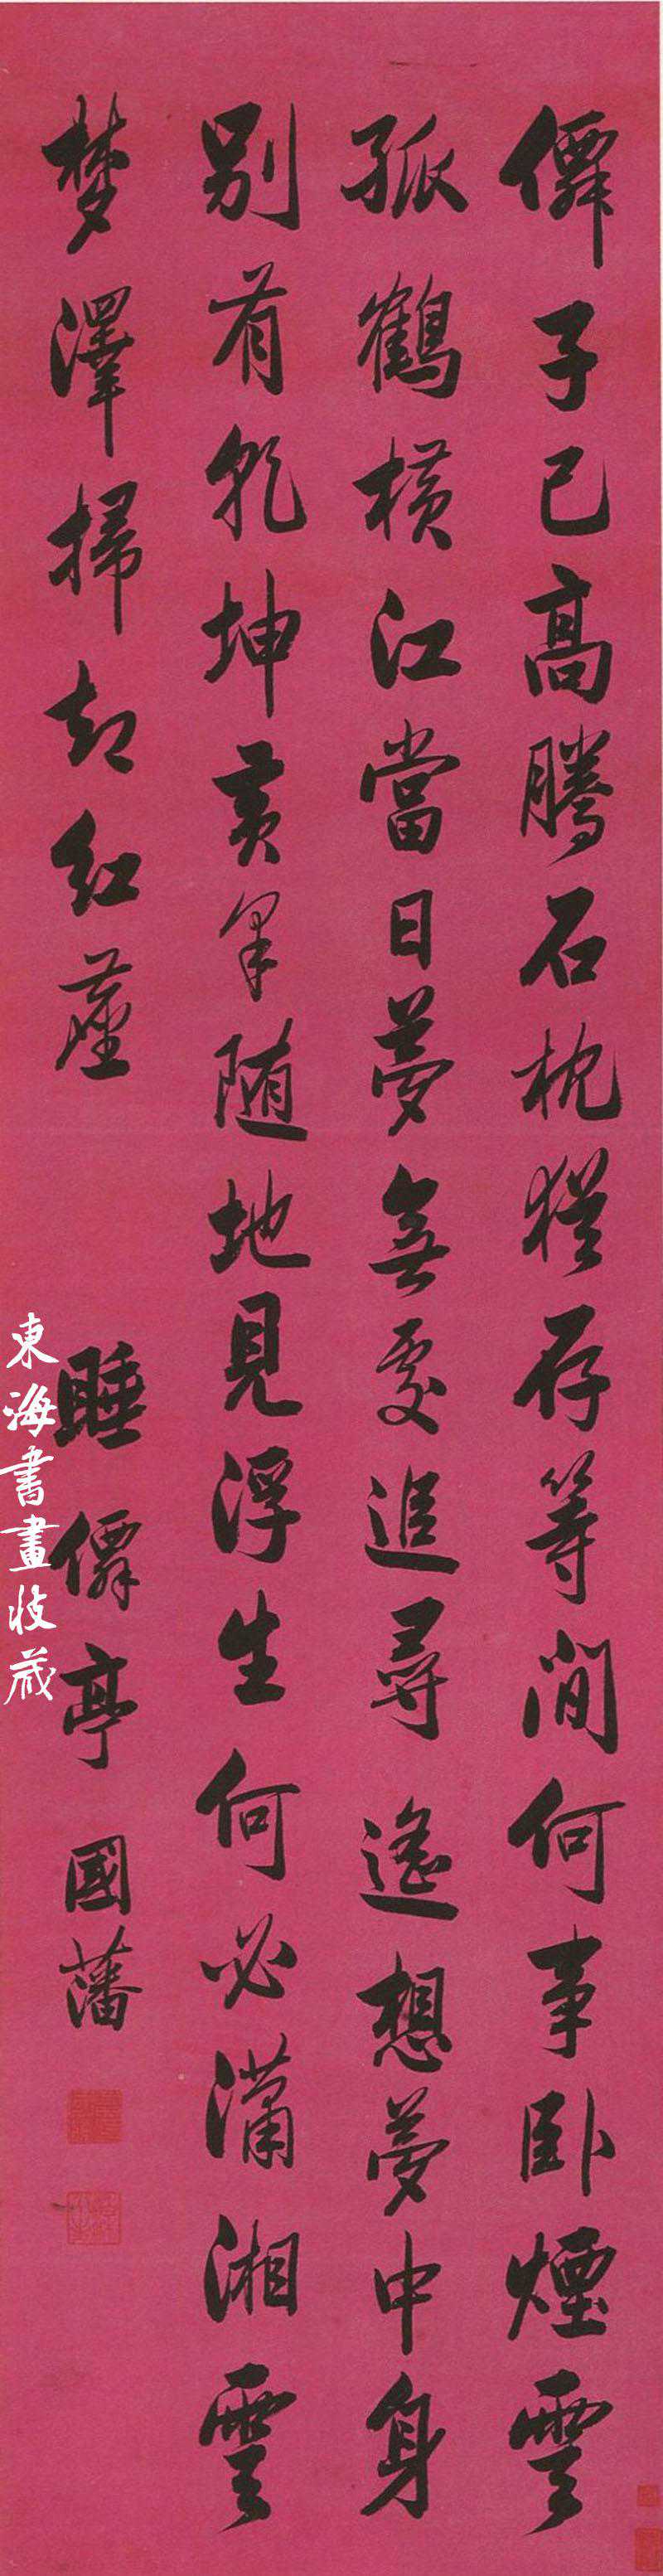 僊子已高騰石枕猶存等閒何事臥煙雲
孤鶴橫江當日夢無處追尋遙想夢中身
別有乾坤黃粱隨地見浮生何必瀟湘雲
梦澤掃却紅塵
睡僊亭 國藩
東海書畫收藏